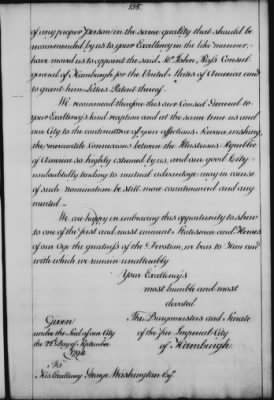 158.
of any proper person in the same quality that should be
recommended by us to your Excellency in the like manner,
have moved us to appoint the said Mr. John Ross Consul
general of Hamburgh for the United States of America and
to grant him Letters Patent thereof.
We recommend therefore this our Consul General to
your Excellency's kind reception and at the same time us and
our City to the continuance of your affectious favour, wishing,
the mercantile Connexions between the Illustrious Republic
of America so highly esteemed by us, and our good City
undoubtedly tending to mutual advantage may in course
of such nomination be still more countenanced and aug
mented.
We are happy in embracing this opportunity to shew
to one of the first and most eminent Statesmen and Heroes
of our Age the greatness of the Devotion, we bear to Him and
with which we remain unalterably
Your Excellency's
most humble and most
devoted
Given
under the Seal of our City
the 22d Day of September
1794
The Burgomasters and Senate
of the free Imperial City
of Hamburgh.
To
His Excellency George Washington Esqr.